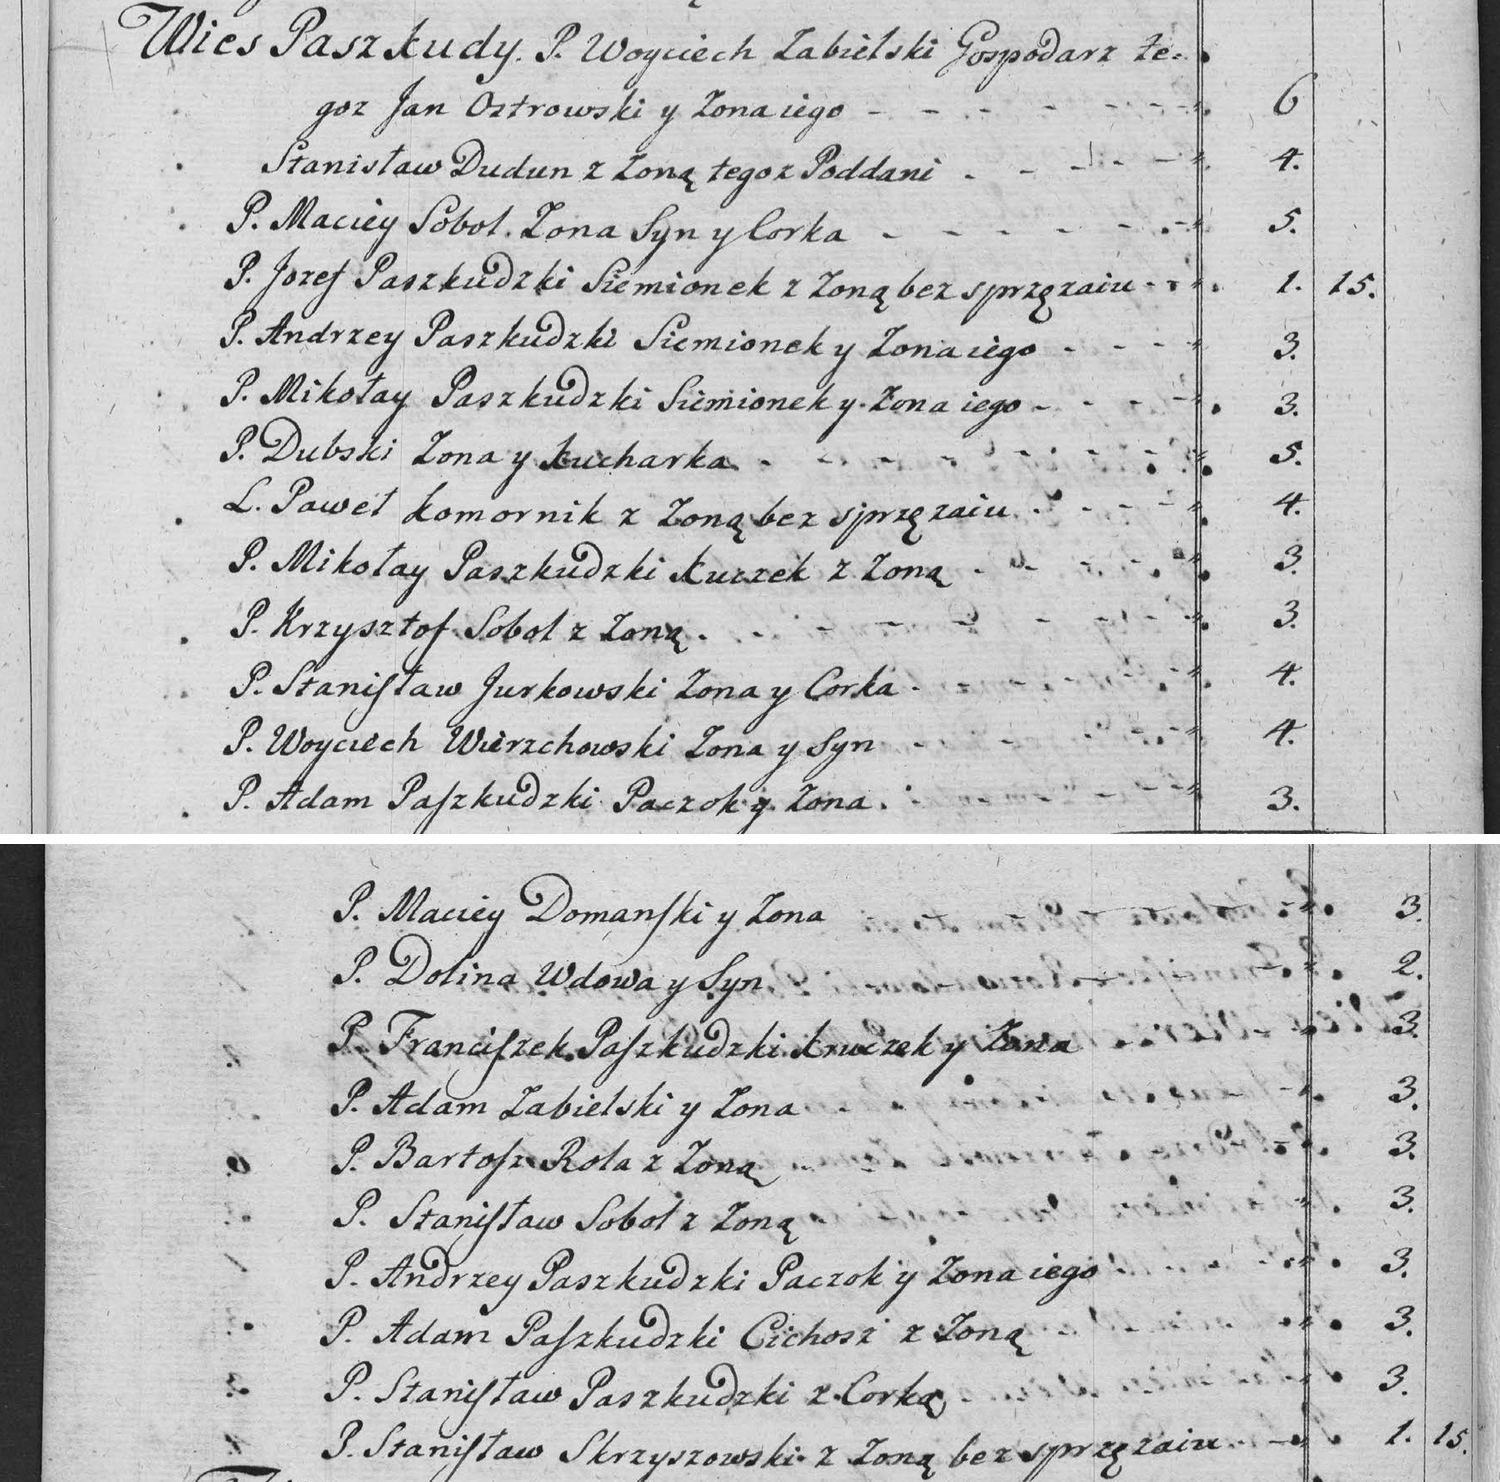 Wies Paszkudy. P. Woyciech Zabielski Gospodarz te=
goz Jan Ostrowski y Zona iego - - - - - - " 6
Stanisław Dudun z Zoną tegoz Poddani - - - - " 4.
P. Maciey Sobol. Zona Syn y Corka - - - - - " 5.
P. Jozef Paszkudzki Siemionek z Zoną bez sprzęzaiu - - " 1. 15.
P. Andrzey Paszkudzki Siemionek y Zona iego - - - - " 3.
P. Mikołay Paszkudzki Siemionek y Zona iego - - - - " 3.
P. Dubski Zona y Kucharka - - - - - - " 5.
L. Paweł Komornik z Zoną bez sprzęzaiu - - - - " 4.
P. Mikołay Paszkudzki Kuczek z Zoną - - - - " 3.
P. Krzysztof Sobol z Zoną - - - - - " 3.
P. Stanisław Jurkowski Zona y Corka - - - " 4.
P. Woyciech Wierzchowski Zona y Syn - - - " 4.
P. Adam Paszkudzki Paczok y Zona - - - " 3.
P. Maciey Domanski y Zona - - - " 3.
P. Dolina Wdowa y Syn - - - " 2.
P. Franciszek Paszkudzki Kruczek y Zona " 3.
P. Adam Zabielski y Zona - - - " 3.
P. Bartosz Rola z Zoną - - - " 3.
P. Stanisław Sobol z Zoną " 3.
P. Andrzey Paszkudzki Paczok y Zona iego " 3.
P. Adam Paszkudzki Cichosz z Zoną " 3.
P. Stanisław Paszkudzki z Corką 3.
P. Stanisław Skrzyszowski z Zoną bez sprzęzaiu - - " 1. 15.